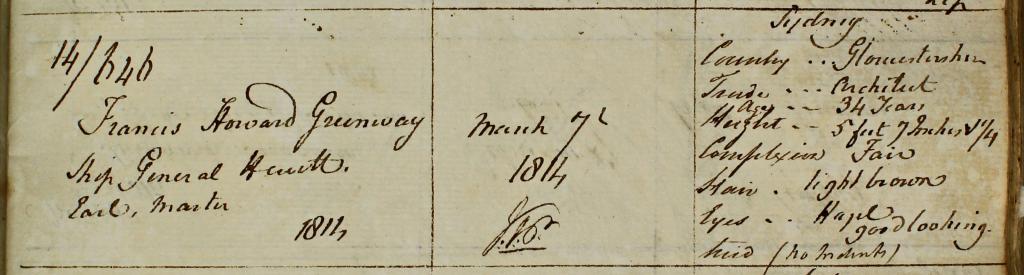 Sydney
14/646
Francis Howard Greenway
Ship General Hewitt.
Earl, Master
1814
March 7t
1814
County .. Gloucestershire
Trade ... Architect
Age .. 34 Years
Height .. 5 feet 7 Inches 1/4
Complexion Fair
Hair . light brown
Eyes .. Hazel
good looking.